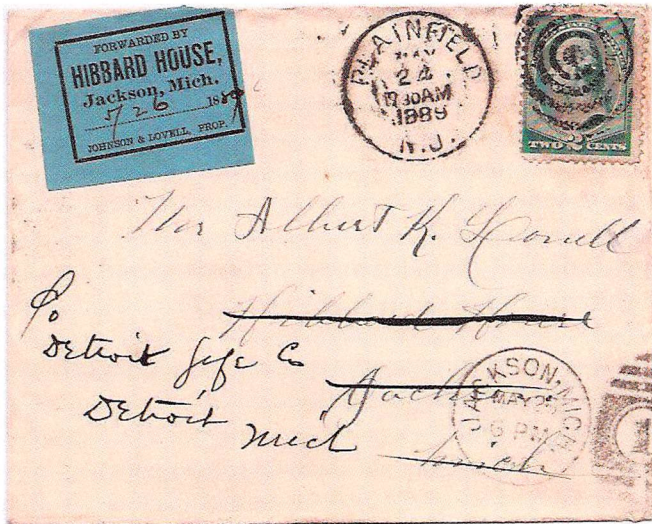 FORWARDED BY
HIBBARD HOUSE,
Jackson, Mich.
5/26 1889
JOHNSON & LOVELL, PROP.
PLAINFIELD
MAY
24
730AM
1889
N.J.
TWO 2 CENTS
Mr Albert K. Lovell
Hibbard House
Jackson
Mich
C/o
Detroit Life Co
Detroit
Mich
JACKSON, MICH.
MAY 25
6 PM
1